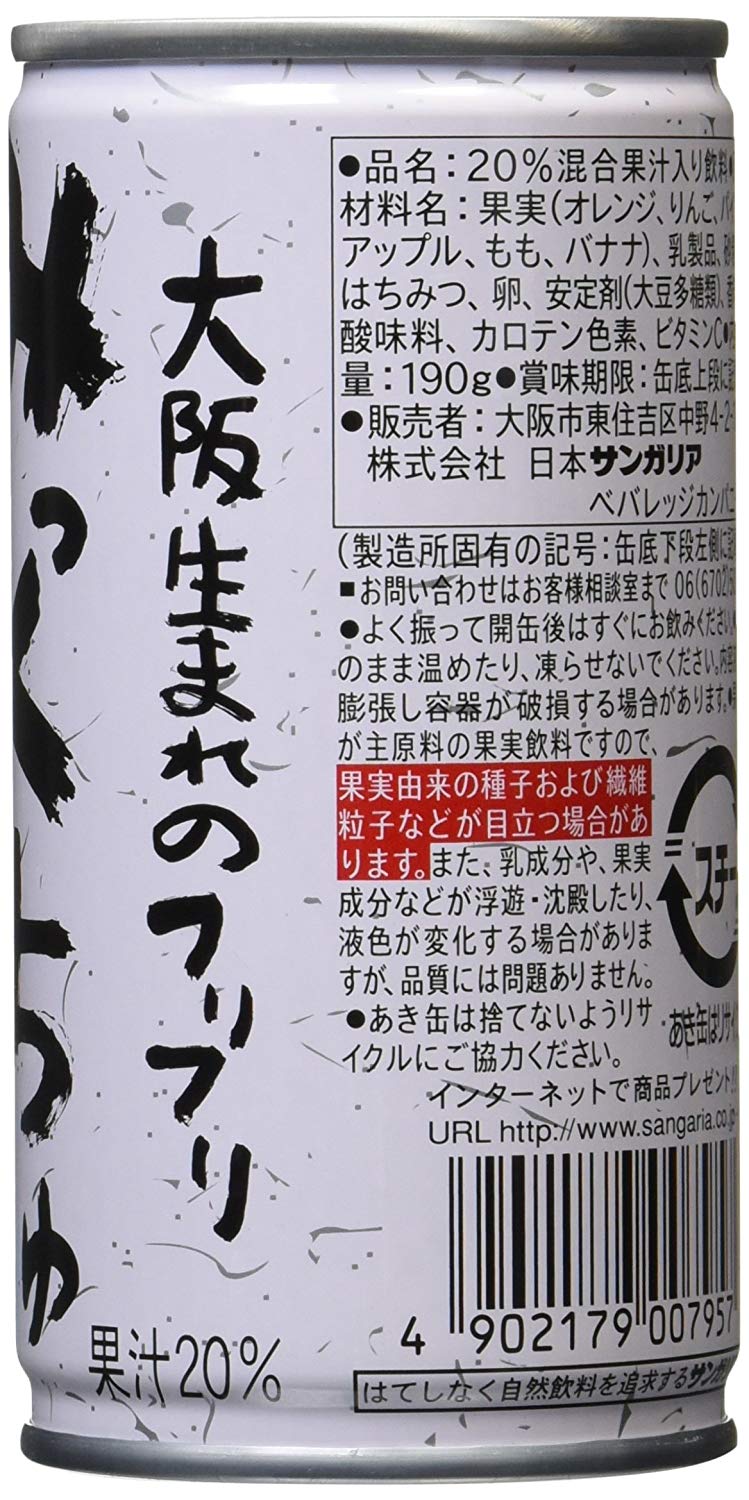 みっくちゅ
大阪生まれのフリフリ
果汁20%
●品名:20%混合果汁入り飲料●
材料名:果実(オレンジ、りんご、パイ
アップル、もも、バナナ)、乳製品、砂
はちみつ、卵、安定剤(大豆多糖類)、香
酸味料、カロテン色素、ビタミンC●
量:190g●賞味期限:缶底上段に
●販売者:大阪市東住吉区中野4-2-
株式会社 日本サンガリア
ベバレッジカンパニ
(製造所固有の記号:缶底下段左側に
■お問い合わせはお客様相談室まで 06(6702)5
●よく振って開缶後はすぐにお飲みください。
のまま温めたり、凍らせないでください。内容
膨張し容器が破損する場合があります。●
が主原料の果実飲料ですので、
果実由来の種子および繊維
粒子などが目立つ場合があ
ります。また、乳成分や、果実
成分などが浮遊・沈殿したり、
液色が変化する場合がありま
すが、品質には問題ありません。
●あき缶は捨てないようリサ
イクルにご協力ください。
スチー
あき缶はリサイ
インターネットで商品プレゼント!!
URL http://www.sangaria.co.jp
4 902179 007957
はてしなく自然飲料を追求するサンガリ